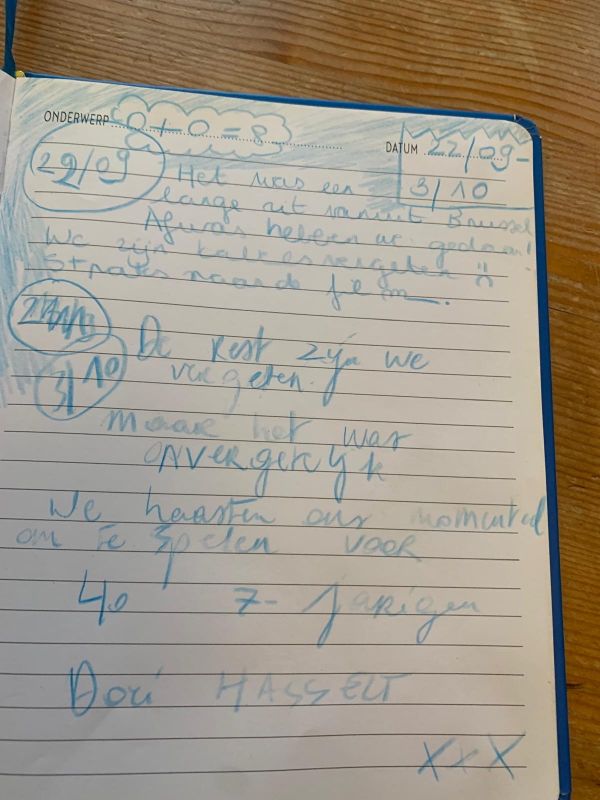 ONDERWERP 0+0=8
DATUM 22/09-
3/10
29/09 Het was een
lange rit vanuit Brussel
Afwas hebben we gedaan!
We zijn vergeten :(
Straks naar de film.
3/10 De Rest zijn we
vergeten.
maar het was
ONVERGETELIJK
We haasten ons momenteel
om te spelen voor
40 7-jarigen
Doei HASSELT
XXX